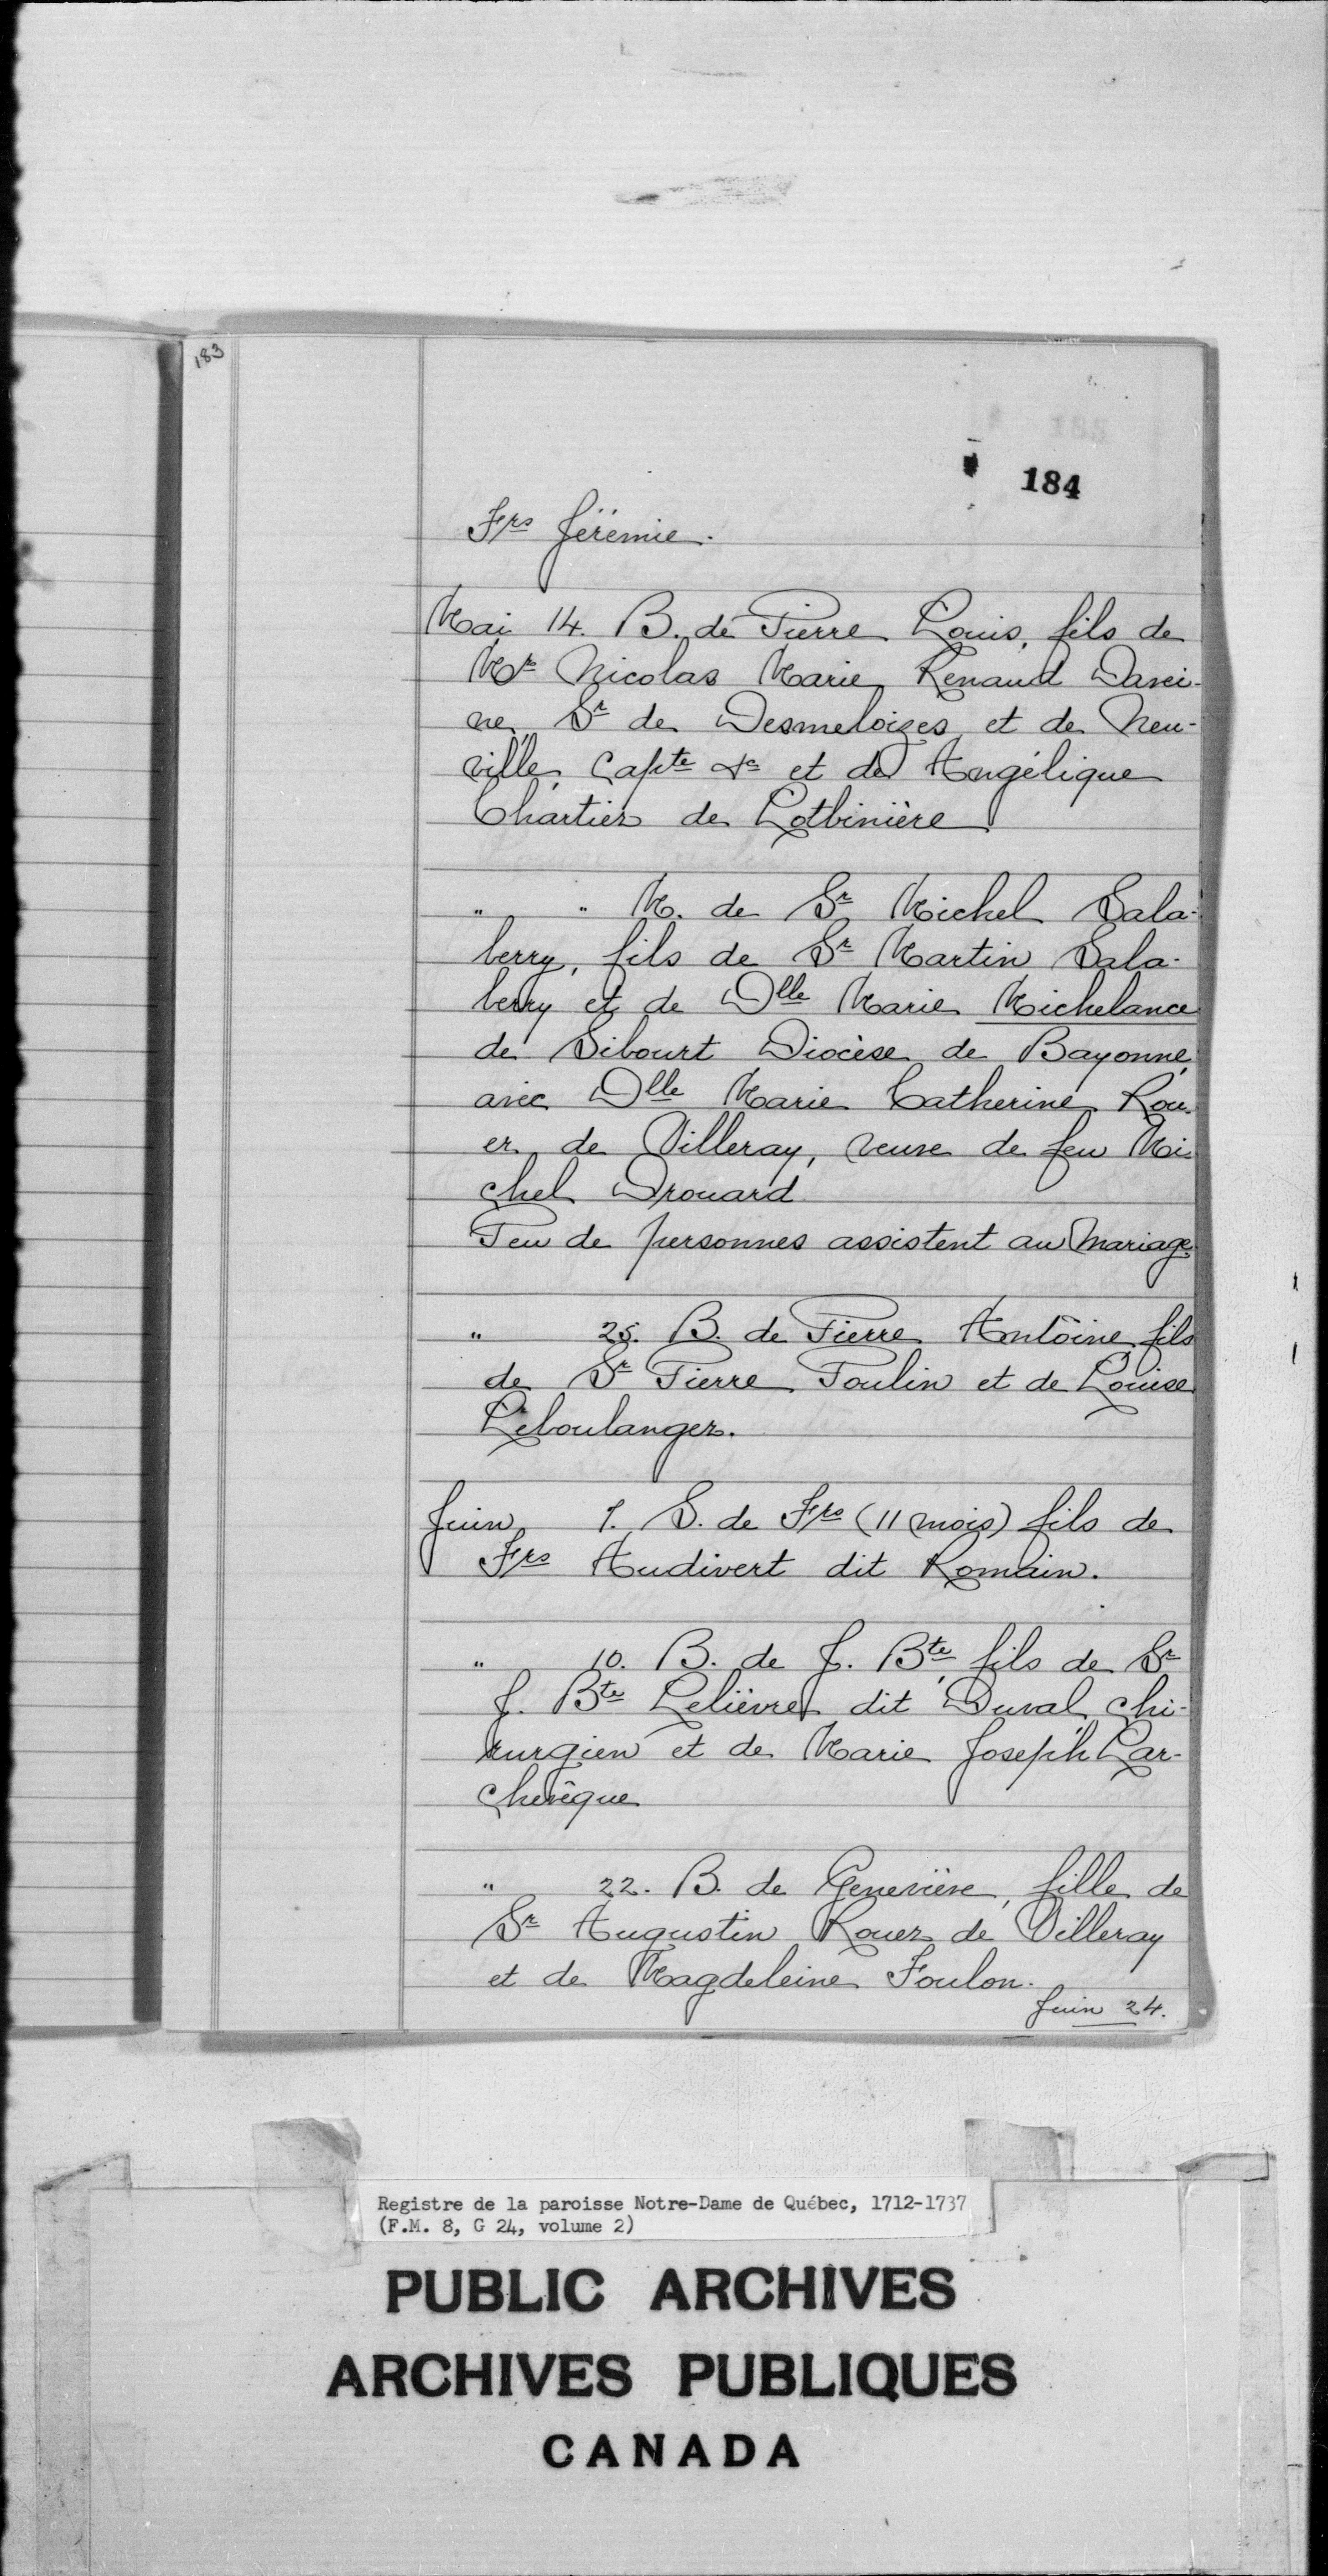 183
184
Frs Jérémie.
Mai 14. B. de Pierre Louis, fils de
Mr Nicolas Marie Renaud Davei-
ne, Sr de Desmeloizes et de Neu-
ville, Capte &c et de Angélique
Chartier de Lotbinière
" " M. de Sr Michel Sala-
berry, fils de Sr Martin Sala-
berry et de Dlle Marie Michelance
de Sibourt Diocèse de Bayonne,
avec Dlle Marie Catherine Rou-
er de Villeray, veuve de feu Mi-
chel Drouard
Peu de personnes assistent au mariage
" 25. B. de Pierre Antoine fils
de Sr Pierre Poulin et de Louise
Leboulanger.
Juin 1. S. de Frs (11 mois) fils de
Frs Audivert dit Romain.
" 10. B. de J. Bte, fils de Sr
J. Bte Lelièvre dit Duval, chi-
rurgien et de Marie Joseph Lar-
chevêque
" 22. B. de Geneviève, fille de
Sr Augustin Rouer de Villeray
et de Magdeleine Foulon.
Juin 24.
Registre de la paroisse Notre-Dame de Québec, 1712-1737
(F.M. 8, G 24, volume 2)
PUBLIC ARCHIVES
ARCHIVES PUBLIQUES
CANADA